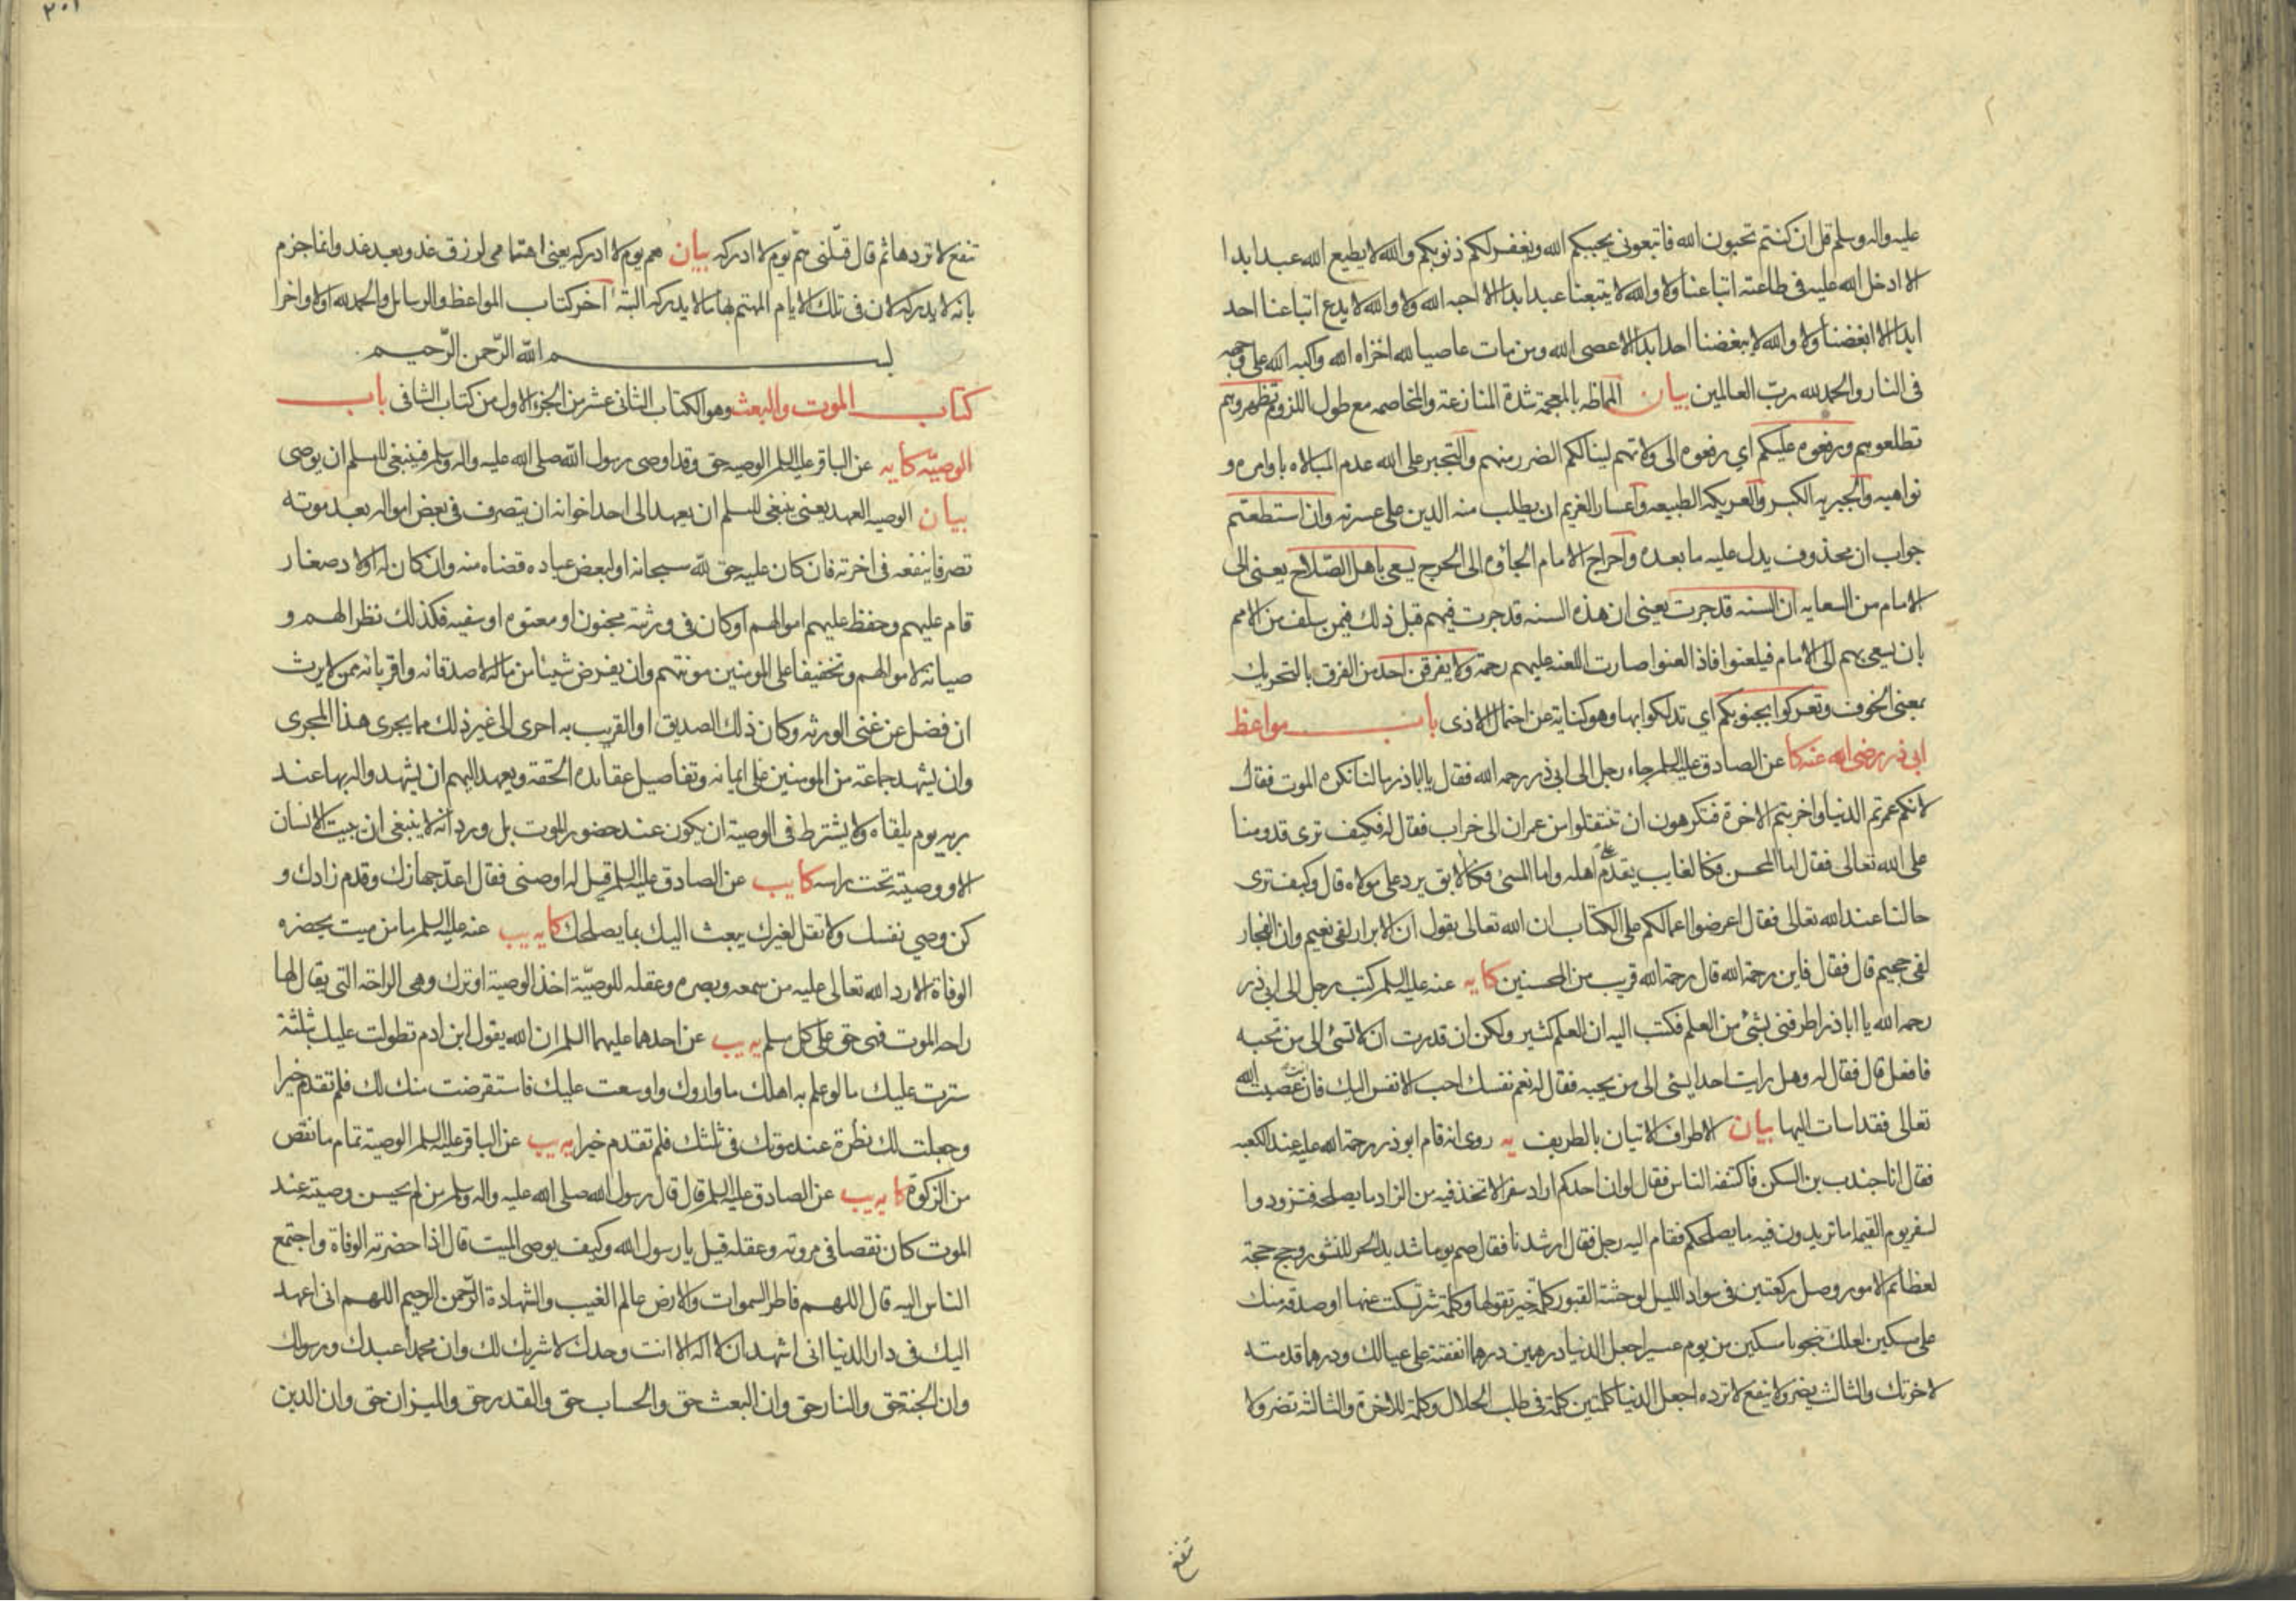 عليه واله وسلم قل ان كنتم تحبون الله فاتبعوني يحببكم الله ويغفر لكم ذنوبكم والله لا يطيع الله عبد ابدا
الا ادخل الله عليه في طاعته اتباعنا ولا والله لا يتبعنا عبد ابدا الا احبه الله ولا والله لا يدع اتباعنا احد
ابدا الا ابغضنا ولا والله لا يبغضنا احد ابدا الا عصى الله ومن مات عاصيا لله اخزاه الله واكبه الله على وجهه
في النار والحمد لله رب العالمين بيان المماظه بالمعجمة شدة المنازعة والمخاصمه مع طول اللزوم تظهروهم
تطلعوهم ورفعوه عليكم اي رفعوه الى ولاتهم لينالكم الضرر منهم والتجبر على الله عدم المبالاه باوامره و
نواهيه والجبريه الكبر والعريكه الطبيعه واعسار الغريم ان يطلب منه الدين على عسرته وان استطعتم
جواب ان محذوف يدل عليه ما بعده واحراج الامام الجاؤه الى الحرج يسعى باهل الصلاح يعنى الى
الامام من السعايه ان السنه قد جرت يعنى ان هذه السنه قد جرت فيهم قبل ذلك فيمن سلف من الامم
بان يسعى بهم الى الامام فيلعنوا فاذا لعنوا صارت اللعنه عليهم رحمة ولا يفرقن احد من الفرق بالتحريك
بمعنى الخوف وتعركوا بجنوبكم اي تدلكوا بها وهو كناية عن احتمال الاذى باب مواعظ
ابي ذر رضي الله عنه كا عن الصادق عليه السلم جاء رجل الى ابي ذر رحمه الله فقال يا اباذر ما لنا نكره الموت فقال
لانكم عمرتم الدنيا واخربتم الاخرة فتكرهون ان تنتقلوا من عمران الى خراب فقال له فكيف ترى قدومنا
على الله تعالى فقال اما المحسن فكالغايب يقدم على اهله واما المسئ فكالابق يرد على مولاه قال وكيف ترى
حالنا عند الله تعالى فقال اعرضوا اعمالكم على الكتاب ان الله تعالى يقول ان الابرار لفي نعيم وان الفجار
لفي جحيم قال فقال فاين رحمة الله قال رحمة الله قريب من المحسنين كا يه عنه عليه السلم كتب رجل الى ابي ذر
رحمه الله يا اباذر اطرفني بشئ من العلم فكتب اليه ان العلم كثير ولكن ان قدرت ان لا تسئ الى من تحبه
فافعل قال فقال له وهل رايت احدا يسئ الى من يحبه فقال له نعم نفسك احب الانفس اليك فان عصيت الله
تعالى فقد اسات اليها بيان الاطراف الاتيان بالطريف يه روى انه قام ابو ذر رحمة الله عليه عند الكعبه
فقال انا جندب بن السكن فاكتنفه الناس فقال لو ان احدكم اراد سفرا لاتخذ فيه من الزاد ما يصلحه فتزودوا
لسفر يوم القيمه اما تريدون فيه ما يصلحكم فقام اليه رجل فقال ارشدنا فقال صم يوما شديد الحر للنشور وحج حجة
لعظائم الامور وصل ركعتين في سواد الليل لوحشة القبور كلمة خير تقولها وكلمة شر تسكت عنها او صدقه منك
على مسكين لعلك تنجو يا مسكين من يوم عسير اجعل الدنيا درهمين درهما انفقته على عيالك ودرهما قدمته
لاخرتك والثالث يضر ولا ينفع لا ترده اجعل الدنيا كلمتين كلمة في طلب الحلال وكلمة للاخرة والثالثه تضر ولا
تنفع
٢٠١
تنفع لا تردها ثم قال قتلني هم يوم لا ادركه بيان هم يوم لا ادركه يعني اهتمامي لرزق غد وبعد غد وانما جزم
بانه لا يدركه لان في تلك الايام المهتم بها ما لا يدركه البته آخر كتاب المواعظ والرسايل والحمد لله اولا واخرا
بسم الله الرحمن الرحيم
كتاب الموت والبعث وهو الكتاب الثاني عشر من الجزء الاول من كتاب الشافي باب
الوصيه كا يه عن الباقر عليه السلم الوصيه حق وقد اوصى رسول الله صلى الله عليه واله وسلم فينبغي للمسلم ان يوصى
بيان الوصيه العهد يعنى ينبغي للمسلم ان يعهد الى احد اخوانه ان يتصرف في بعض امواله بعد موته
تصرفا ينفعه في اخرته فان كان عليه حق لله سبحانه او لبعض عباده قضاه منه وان كان له اولاد صغار
قام عليهم وحفظ عليهم اموالهم او كان في ورثته مجنون او معتوه او سفيه فكذلك نظرا لهم و
صيانة لاموالهم وتخفيفا على المومنين مونتهم وان يفرض شيئا من ماله لاصدقائه واقربائه ممن لا يرث
ان فضل عن غنى الورثه وكان ذلك الصديق او القريب به احرى الى غير ذلك مما يجرى هذا المجرى
وان يشهد جماعة من المومنين على ايمانه وتفاصيل عقايده الحقة ويعهد اليهم ان يشهدوا له بها عند
ربه يوم يلقاه ولا يشترط في الوصية ان يكون عند حضور الموت بل ورد انه لا ينبغي ان يبيت الانسان
الا ووصيته تحت راسه كا يب عن الصادق عليه السلم قيل له اوصنى فقال اعد جهازك وقدم زادك و
كن وصي نفسك ولا تقل لغيرك يبعث اليك بما يصلحك كا يه يب عنه عليه السلم ما من ميت يحضره
الوفاة الا رد الله تعالى عليه من سمعه وبصره وعقله للوصية اخذ الوصية او ترك وهي الراحه التي يقال لها
راحه الموت فهى حق على كل مسلم يه يب عن احدهما عليهما السلم ان الله يقول ابن ادم تطولت عليك بثلثة
سترت عليك ما لو علم به اهلك ما واروك واوسعت عليك فاستقرضت منك لك فلم تقدم خيرا
وجعلت لك نظرة عند موتك في ثلثك فلم تقدم خيرا يه يب عن الباقر عليه السلم الوصية تمام ما نقص
من الزكوة كا يه يب عن الصادق عليه السلم قال قال رسول الله صلى الله عليه واله وسلم من لم يحسن وصيته عند
الموت كان نقصا في مروته وعقله قيل يا رسول الله وكيف يوصى الميت قال اذا حضرته الوفاة واجتمع
الناس اليه قال اللهم فاطر السموات والارض عالم الغيب والشهادة الرحمن الرحيم اللهم انى اعهد
اليك في دار الدنيا انى اشهد ان لا اله الا انت وحدك لا شريك لك وان محمدا عبدك ورسولك
وان الجنة حق والنار حق وان البعث حق والحساب حق والقدر حق والميزان حق وان الدين